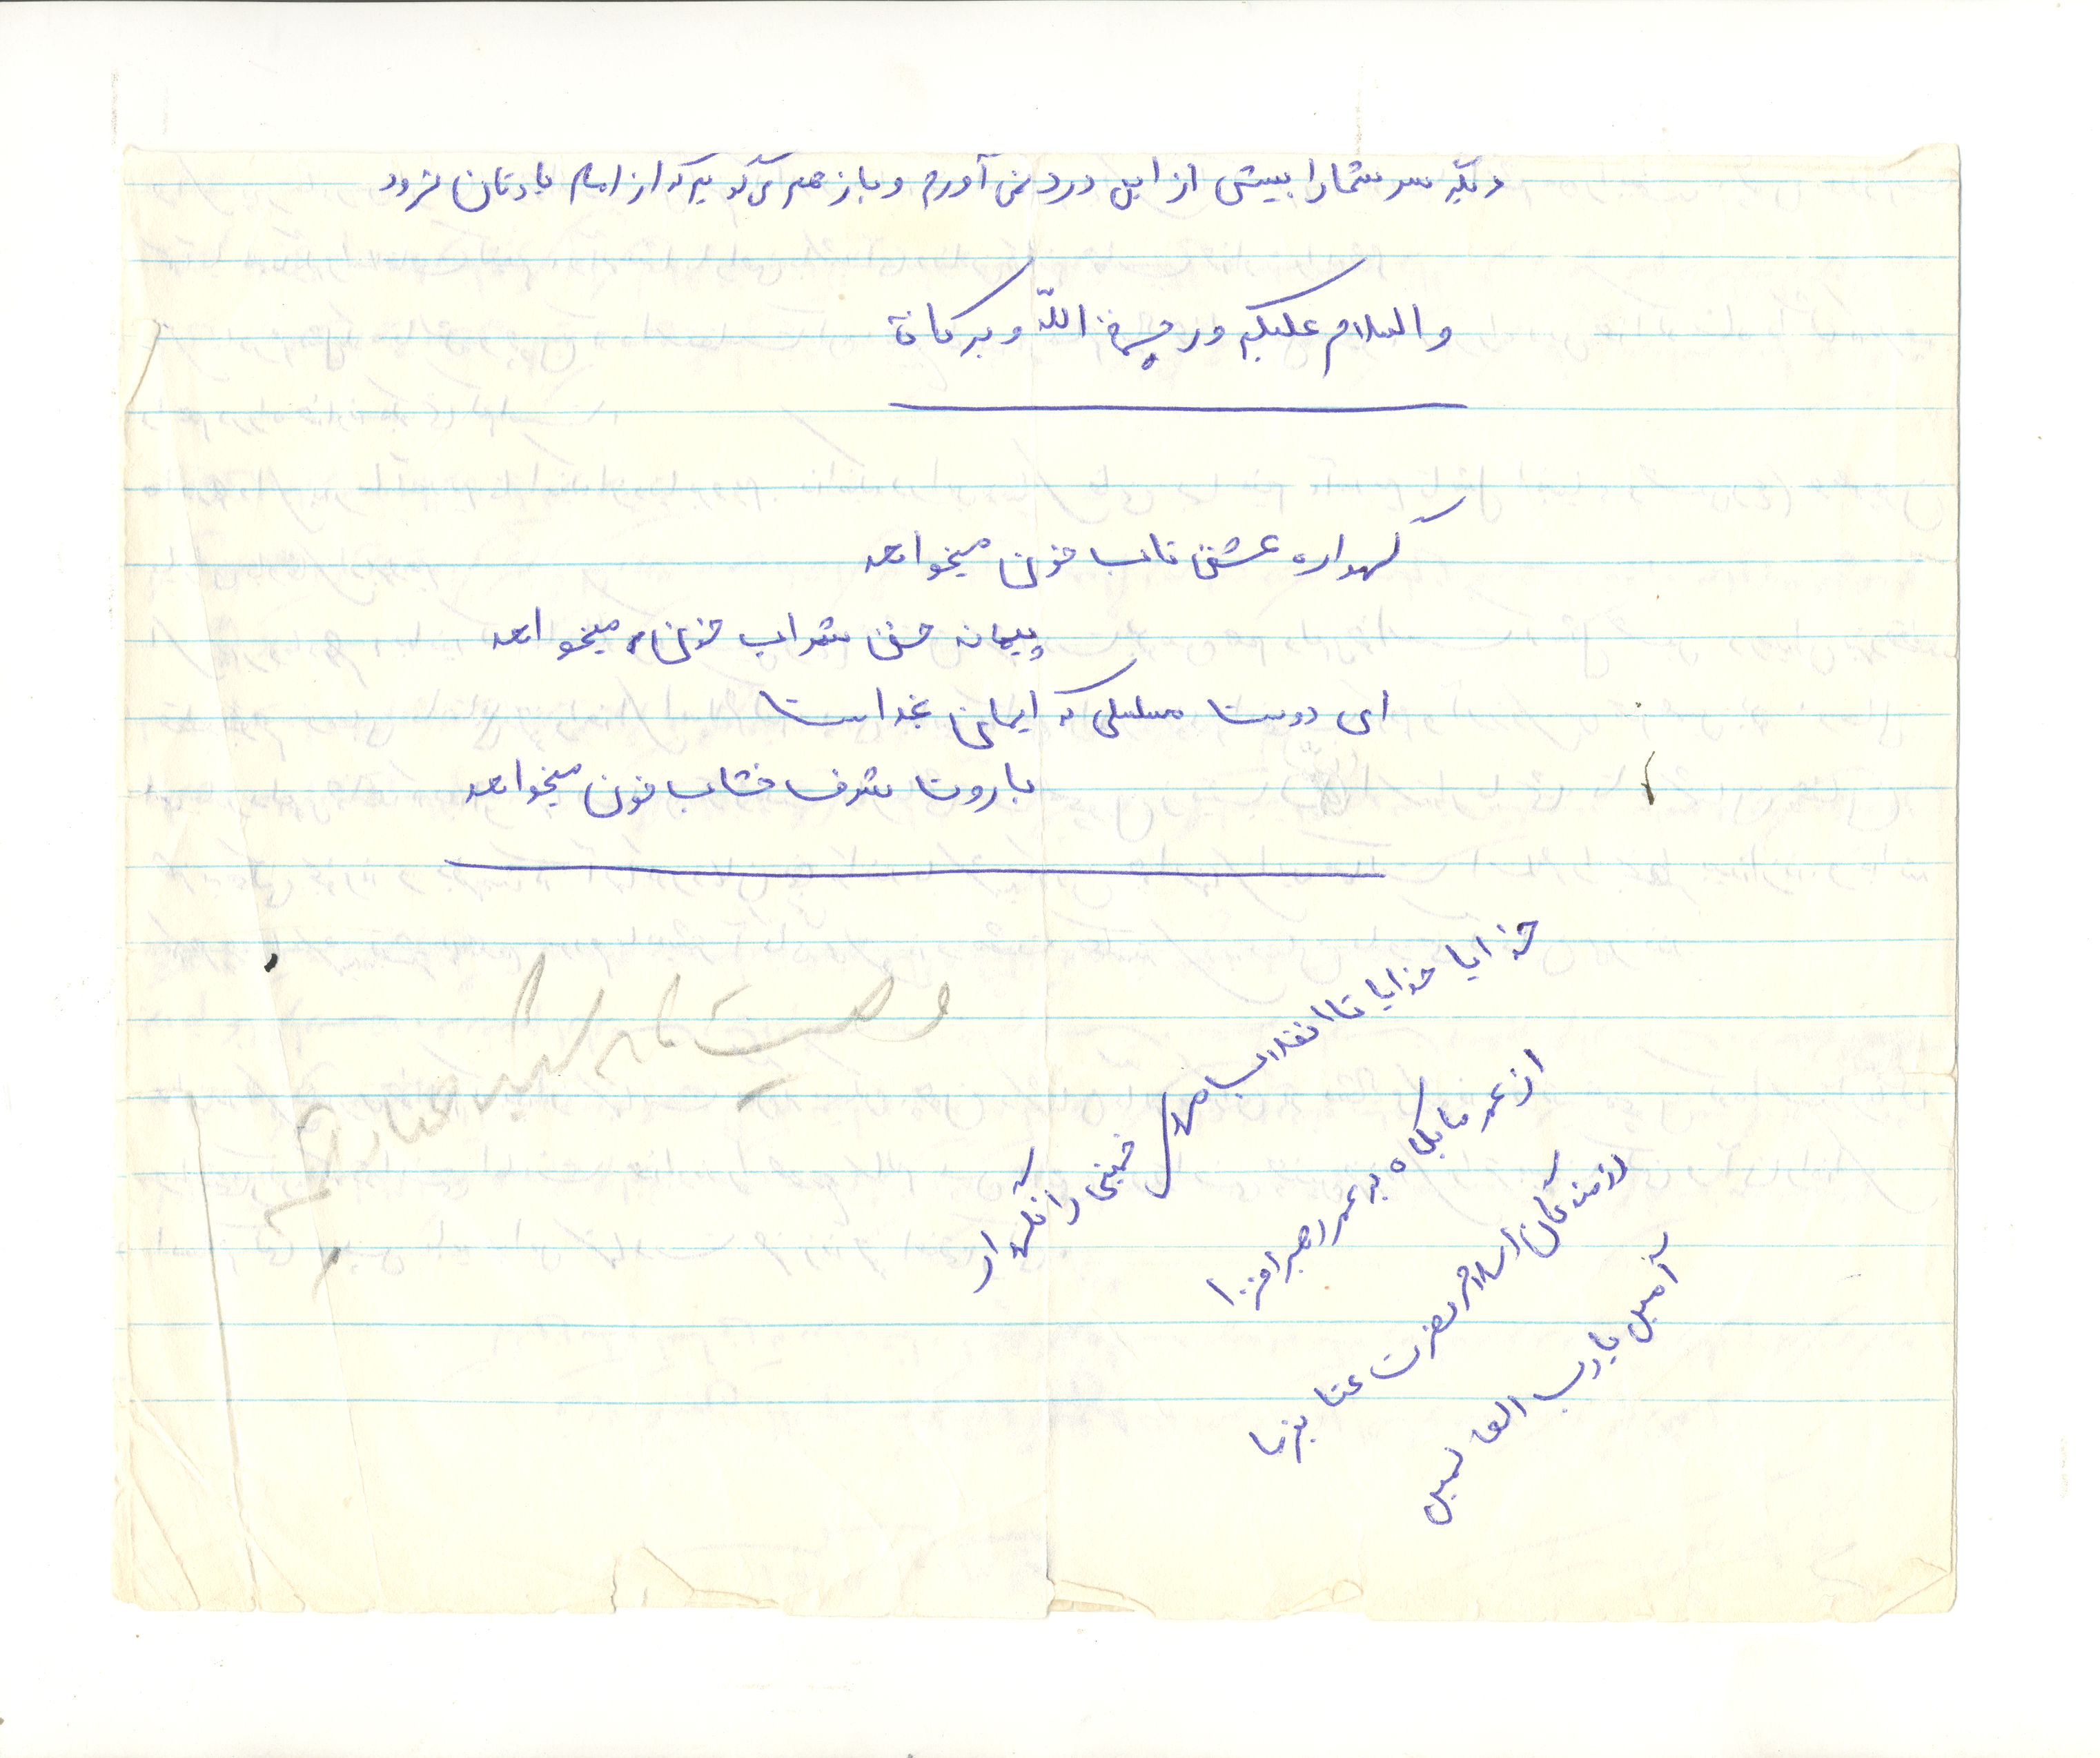 دیگر سر شما را بیش از این درد نمی آورم و باز هم می گویم که از امام یادتان نرود
والسلام علیکم ورحمة الله وبرکاتة
گهواره عشق تاب خون میخواهد
پیمانه حق شراب خون میخواهد
ای دوست مسلسلی که ایمان بخداست
باروت شرف خشاب خون میخواهد
خدایا خدایا تا انقلاب مهدی خمینی را نگهدار
از عمر ما بکاه به عمر رهبر افزا
رزمندگان اسلام نصرت عطا بفرما
آمین یا رب العالمین
وصیت نامه شهید